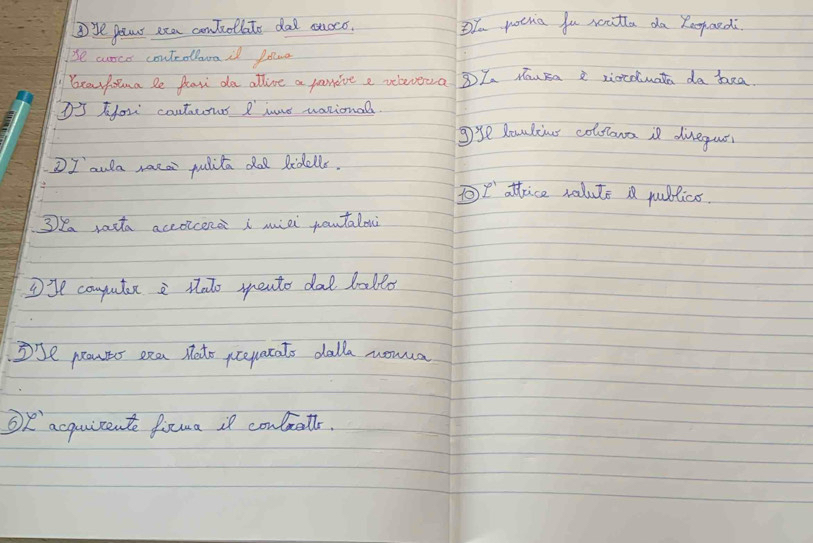 8) Il forno era controllato dal cuoco.
Il cuoco controllava il forno
Trasforma le frasi da attive a passive e viceversa
1) I tifosi cantarono l'inno nazionale.
2) L'aula sarà pulita dal bidello.
3) La sarta accorcerà i miei pantaloni
4) Il computer è stato spento dal babbo
5) Il pranzo era stato preparato dalla nonna
6) L'acquirente firma il contratto.
7) La poesia fu scritta da Leopardi.
8) La stanza è riordinata da Sara.
9) Il bambino colorava il disegno.
10) L'attrice saluta il publico.